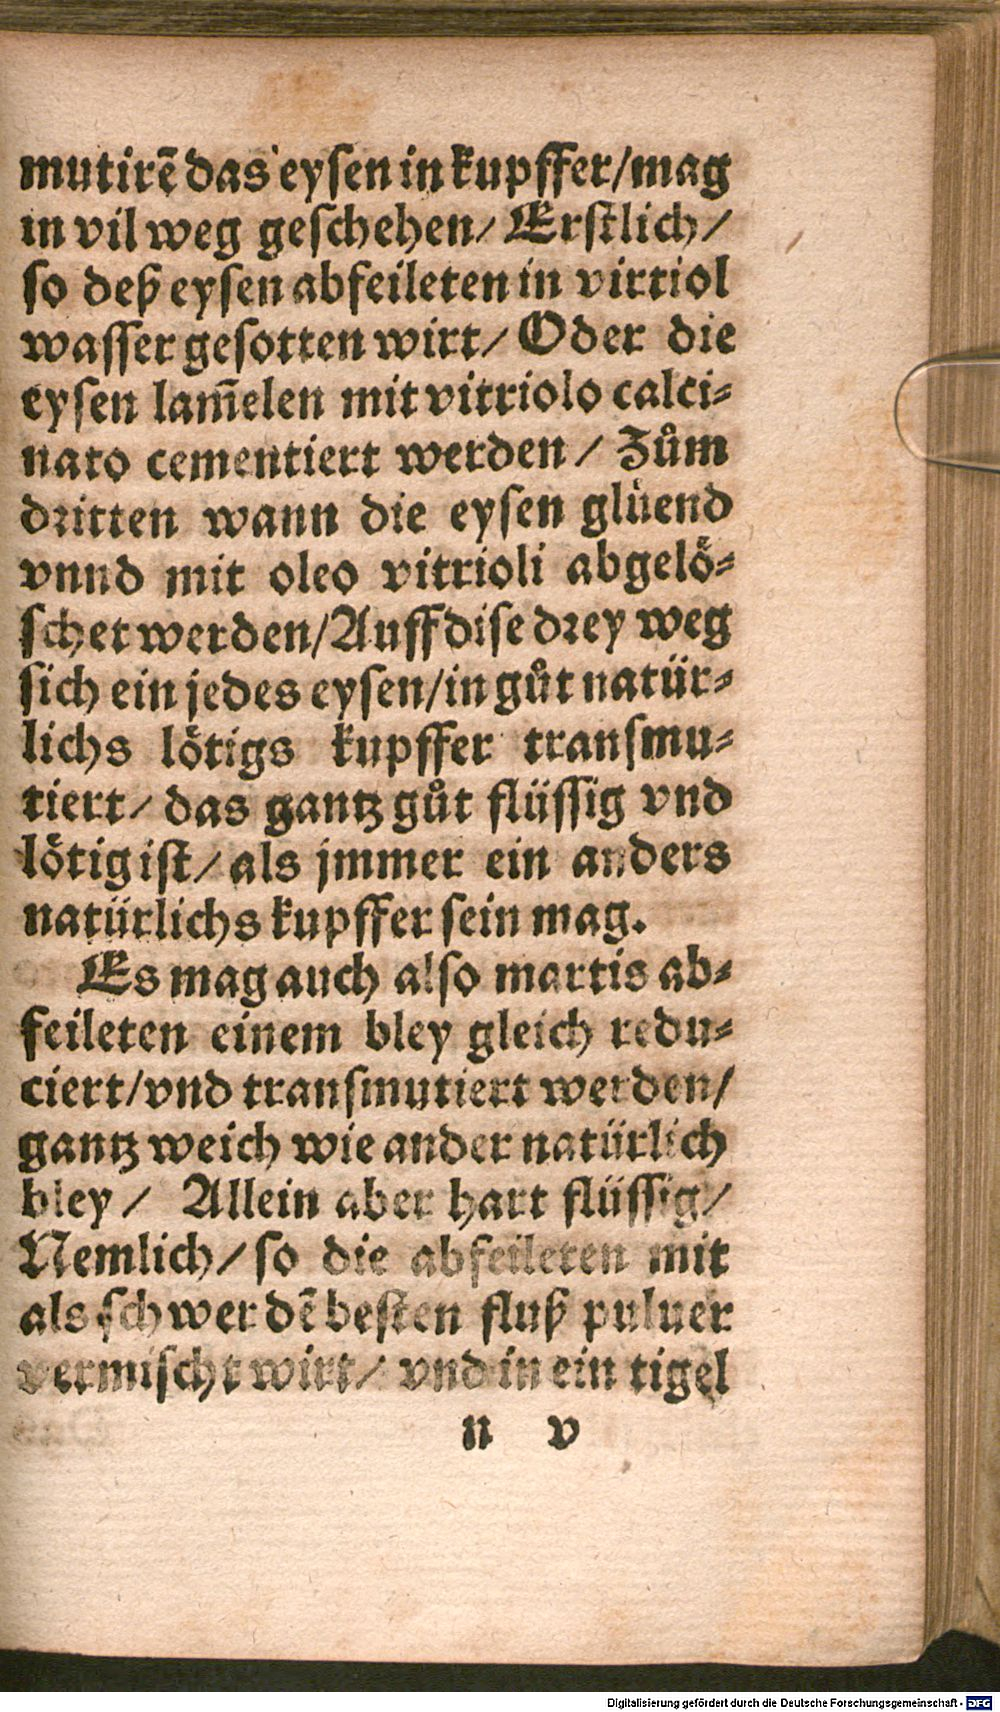 mutirē das eysen in kupffer/mag
in vil weg geschehen/ Erstlich/
so deß eysen abfeileten in virtiol
wasser gesotten wirt/ Oder die
eysen lam̄elen mit vitriolo calci⸗
nato cementiert werden/ Zům
dritten wann die eysen glüend
vnnd mit oleo vitrioli abgelö⸗
schet werden/Auff dise drey weg
sich ein jedes eysen/in gůt natür⸗
lichs lötigs kupffer transmu⸗
tiert/ das gantz gůt flüssig vnd
lötig ist/ als jmmer ein anders
natürlichs kupffer sein mag.
Es mag auch also martis ab⸗
feileten einem bley gleich redu⸗
ciert/vnd transmutiert werden/
gantz weich wie ander natürlich
bley/ Allein aber hart flüssig/
Nemlich/so die abfeileten mit
als schwer dē besten fluß puluer
vermischt wirt/ vnd in ein tigel
n v
Digitalisierung gefördert durch die Deutsche Forschungsgemeinschaft - DFG